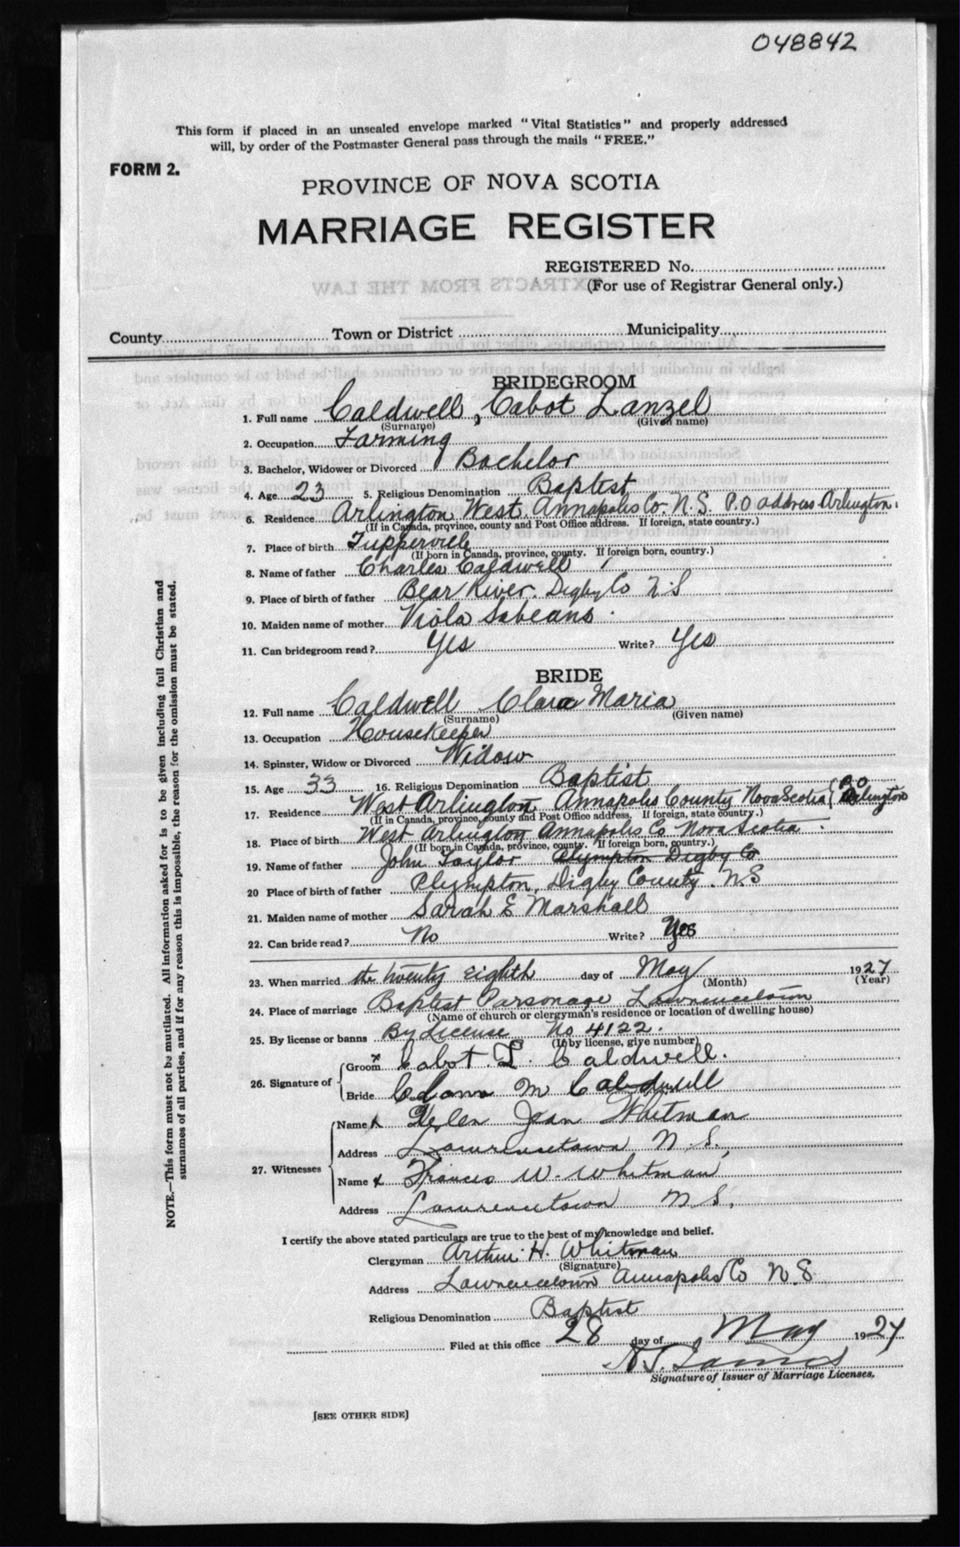 048842
This form if placed in an unsealed envelope marked "Vital Statistics" and properly addressed
will, by order of the Postmaster General pass through the mails "FREE."
FORM 2.
PROVINCE OF NOVA SCOTIA
MARRIAGE REGISTER
REGISTERED No.
(For use of Registrar General only.)
EXTRACTS FROM THE LAW
County Town or District Municipality
BRIDEGROOM
1. Full name Caldwell, Cabot Lanzel
(Surname) (Given name)
2. Occupation Farming
3. Bachelor, Widower or Divorced Bachelor
4. Age 23 5. Religious Denomination Baptist
6. Residence Arlington West. Annapolis Co. N.S. P.O address Arlington.
(If in Canada, province, county and Post Office address. If foreign, state country.)
7. Place of birth Tupperville
(If born in Canada, province, county. If foreign born, country.)
8. Name of father Charles Caldwell
9. Place of birth of father Bear River. Digby Co N.S
10. Maiden name of mother Viola Sabeans.
11. Can bridegroom read? Yes Write? Yes
BRIDE
12. Full name Caldwell Clara Maria
(Surname) (Given name)
13. Occupation Housekeeper
14. Spinster, Widow or Divorced Widow
15. Age 33 16. Religious Denomination Baptist
17. Residence West Arlington Annapolis County Nova Scotia { P.O Arlington
(If in Canada, province, county and Post Office address. If foreign, state country.)
18. Place of birth West Arlington Annapolis Co. Nova Scotia.
(If born in Canada, province, county. If foreign born, country.)
19. Name of father John Taylor Plympton Digby Co
20 Place of birth of father Plympton, Digby County. N.S
21. Maiden name of mother Sarah E Marshall
22. Can bride read? No Write? Yes
23. When married the twenty eighth day of May 1927
(Month) (Year)
24. Place of marriage Baptist Parsonage Lawrencetown
(Name of church or clergyman's residence or location of dwelling house)
25. By license or banns By License No 4122.
(If by license, give number)
26. Signature of { Groom x Cabot. L. Caldwell.
Bride Clara M Caldwell
27. Witnesses { Name x Helen Jean Whitman
Address Lawrencetown N.S.
Name x Francis W. Whitman
Address Lawrencetown N.S.
I certify the above stated particulars are true to the best of my knowledge and belief.
Clergyman Arthur H. Whitman
(Signature)
Address Lawrencetown Annapolis Co N.S.
Religious Denomination Baptist
Filed at this office 28 day of May 1927
Signature of Issuer of Marriage Licenses.
[SEE OTHER SIDE]
NOTE.—This form must not be mutilated. All information asked for is to be given including full Christian and
surnames of all parties, and if for any reason this is impossible, the reason for the omission must be stated.